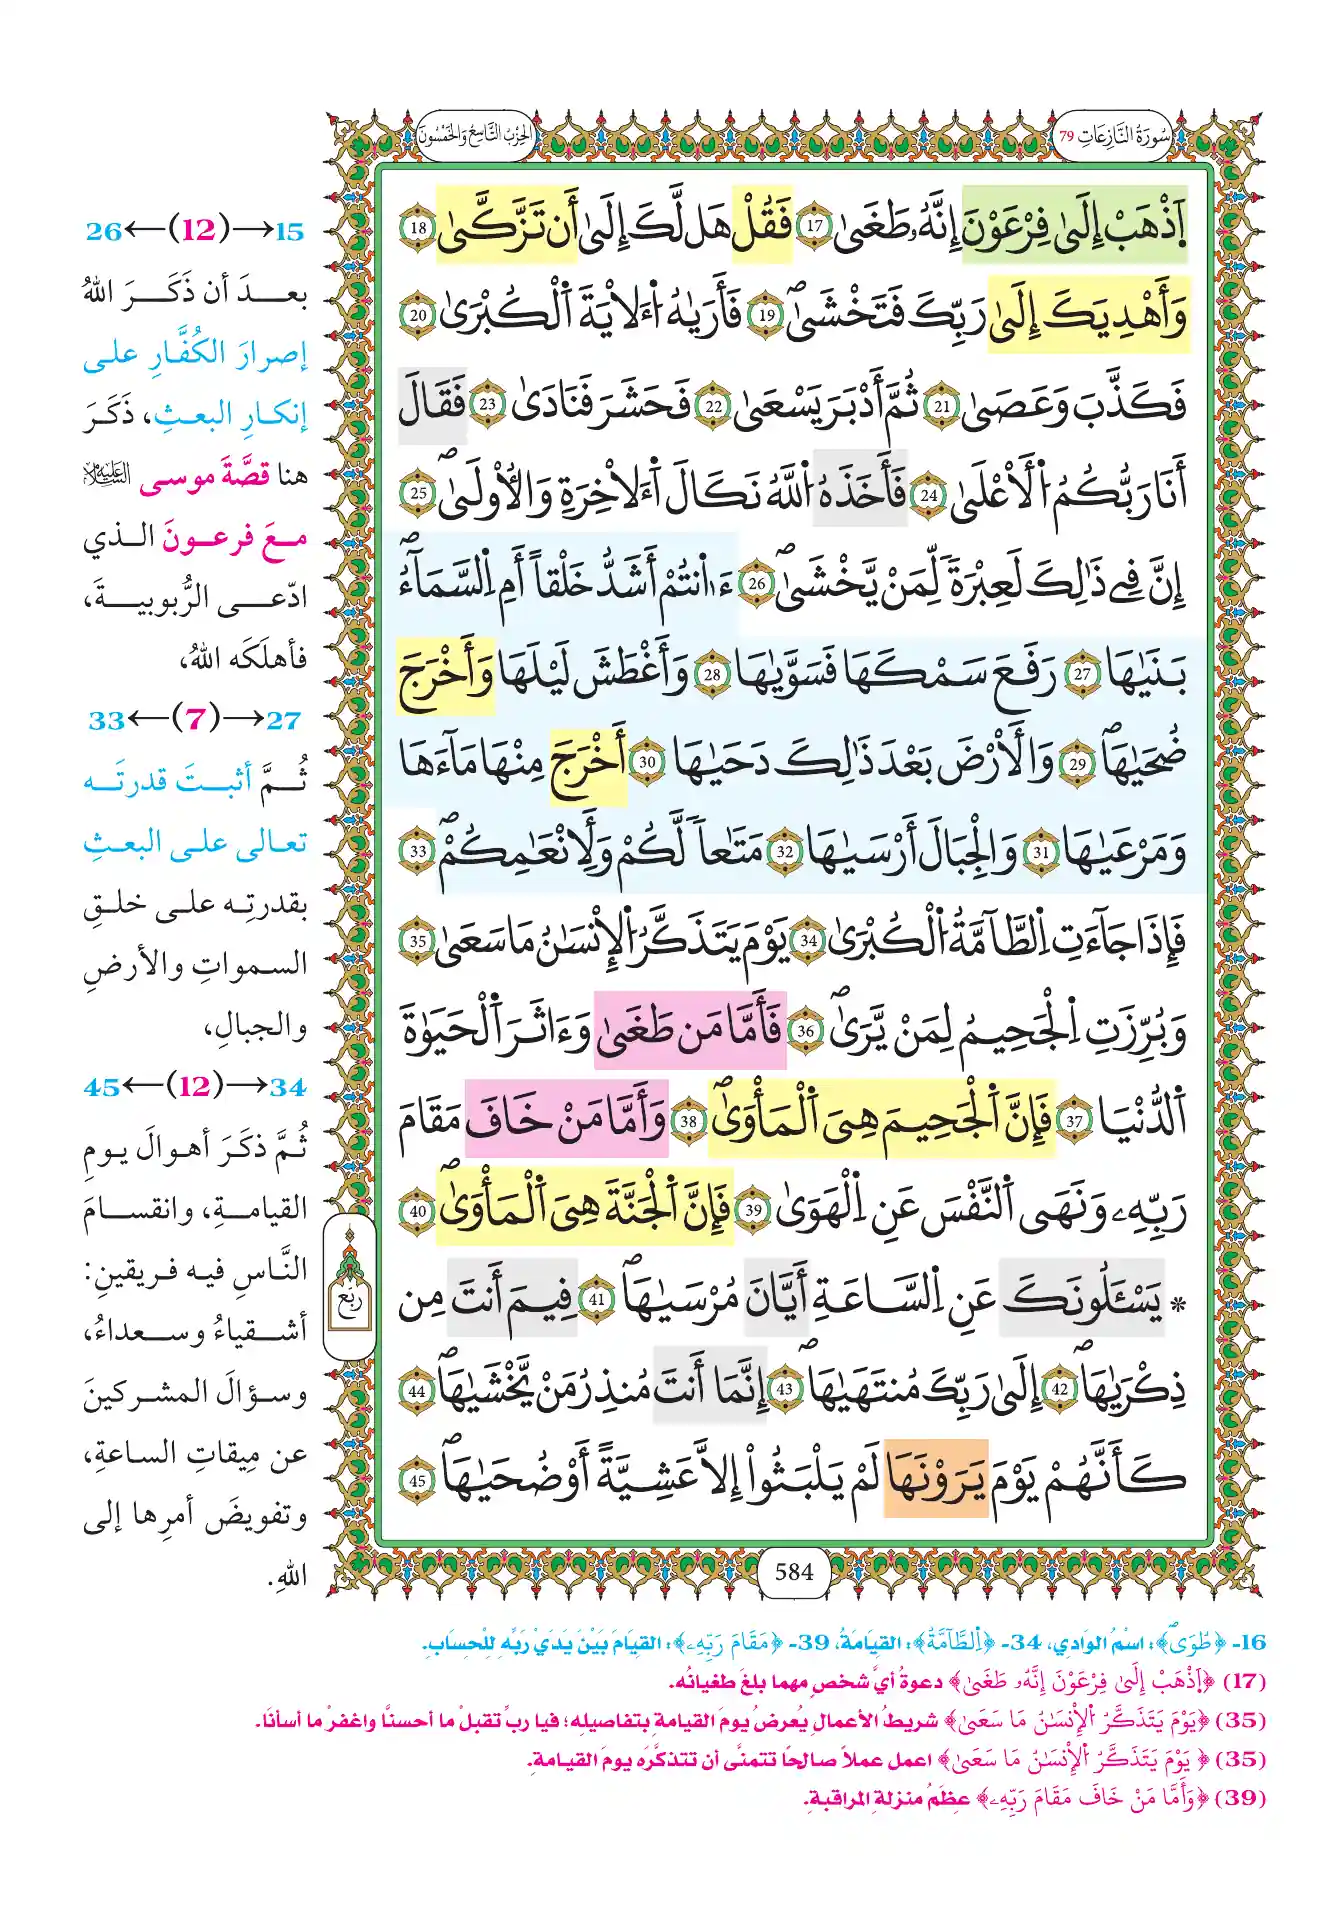 سُورَةُ النَّازِعَاتِ 79
الحِزْبُ التَّاسِعُ وَالخَمْسُونَ
اَ۪ذْهَبْ إِلَىٰ فِرْعَوْنَ إِنَّهُۥ طَغَىٰ 17 فَقُلْ هَل لَّكَ إِلَىٰ أَن تَزَّكَّىٰ 18
وَأَهْدِيَكَ إِلَىٰ رَبِّكَ فَتَخْشَىٰ 19 فَأَرَىٰهُ اُ۬لَايَةَ اَ۬لْكُبْرَىٰ 20
فَكَذَّبَ وَعَصَىٰ 21 ثُمَّ أَدْبَرَ يَسْعَىٰ 22 فَحَشَرَ فَنَادَىٰ 23 فَقَالَ
أَنَا رَبُّكُمُ اُ۬لَاعْلَىٰ 24 فَأَخَذَهُ اُ۬للَّهُ نَكَالَ اَ۬لَاخِرَةِ وَالُاولَىٰٓ 25
إِنَّ فِي ذَٰلِكَ لَعِبْرَةً لِّمَنْ يَّخْشَىٰٓ 26 ءَا۬نتُمْ أَشَدُّ خَلْقاً أَمِ اِ۬لسَّمَآءُ
بَنَىٰهَا 27 رَفَعَ سَمْكَهَا فَسَوَّىٰهَا 28 وَأَغْطَشَ لَيْلَهَا وَأَخْرَجَ
ضُحَىٰهَا 29 وَالَارْضَ بَعْدَ ذَٰلِكَ دَحَىٰهَا 30 أَخْرَجَ مِنْهَا مَآءَهَا
وَمَرْعَىٰهَا 31 وَالْجِبَالَ أَرْسَىٰهَا 32 مَتَٰعاً لَّكُمْ وَلِأَنْعَٰمِكُمْ 33
فَإِذَا جَآءَتِ اِ۬لطَّآمَّةُ اُ۬لْكُبْرَىٰ 34 يَوْمَ يَتَذَكَّرُ اُ۬لِانسَٰنُ مَا سَعَىٰ 35
وَبُرِّزَتِ اِ۬لْجَحِيمُ لِمَنْ يَّرَىٰ 36 فَأَمَّا مَن طَغَىٰ وَءَاثَرَ اَ۬لْحَيَوٰةَ
اَ۬لدُّنْيَا 37 فَإِنَّ اَ۬لْجَحِيمَ هِيَ اَ۬لْمَأْوَىٰ 38 وَأَمَّا مَنْ خَافَ مَقَامَ
رَبِّهِۦ وَنَهَى اَ۬لنَّفْسَ عَنِ اِ۬لْهَوَىٰ 39 فَإِنَّ اَ۬لْجَنَّةَ هِيَ اَ۬لْمَأْوَىٰ 40
* يَسْـَٔلُونَكَ عَنِ اِ۬لسَّاعَةِ أَيَّانَ مُرْسَىٰهَا 41 فِيمَ أَنتَ مِن
ذِكْرَىٰهَآ 42 إِلَىٰ رَبِّكَ مُنتَهَىٰهَآ 43 إِنَّمَا أَنتَ مُنذِرُ مَنْ يَّخْشَىٰهَا 44
كَأَنَّهُمْ يَوْمَ يَرَوْنَهَا لَمْ يَلْبَثُوٓاْ إِلَّا عَشِيَّةً أَوْ ضُحَىٰهَا 45
584
رُبُع
15→(12)←26
بعدَ أن ذَكَرَ اللهُ
إصرارَ الكُفَّارِ على
إنكارِ البعثِ، ذَكَرَ
هنا قصَّةَ موسى عليه السلام
معَ فرعونَ الذي
ادّعى الرُّبوبيةَ،
فأهلَكَه اللهُ،
27→(7)←33
ثُمَّ أثبتَ قدرتَه
تعالى على البعثِ
بقدرتِه على خلقِ
السمواتِ والأرضِ
والجبالِ،
34→(12)←45
ثُمَّ ذكَرَ أهوالَ يومِ
القيامةِ، وانقسامَ
النَّاسِ فيه فريقينِ:
أشقياءُ وسعداءُ،
وسؤالَ المشركينَ
عن مِيقاتِ الساعةِ،
وتفويضَ أمرِها إلى
اللهِ.
16- ﴿طُوَىٰٓ﴾: اسْمُ الوَادِي، 34- ﴿اِ۬لطَّآمَّةُ﴾: القِيَامَةُ، 39- ﴿مَقَامَ رَبِّهِۦ﴾: القِيَامَ بَيْنَ يَدَيْ رَبِّهِ لِلْحِسَابِ.
(17) ﴿اَ۪ذْهَبْ إِلَىٰ فِرْعَوْنَ إِنَّهُۥ طَغَىٰ﴾ دعوةُ أيِّ شخصٍ مهما بلغَ طغيانُه.
(35) ﴿يَوْمَ يَتَذَكَّرُ اُ۬لِانسَٰنُ مَا سَعَىٰ﴾ شريطُ الأعمالِ يُعرضُ يومَ القيامةِ بتفاصيلِه؛ فيا ربِّ تقبلْ ما أحسنَّا واغفرْ ما أسأنَا.
(35) ﴿يَوْمَ يَتَذَكَّرُ اُ۬لِانسَٰنُ مَا سَعَىٰ﴾ اعمل عملاً صالحًا تتمنَّى أن تتذكَّرَه يومَ القيامةِ.
(39) ﴿وَأَمَّا مَنْ خَافَ مَقَامَ رَبِّهِۦ﴾ عِظَمُ منزلةِ المراقبةِ.